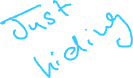 Just
hiding